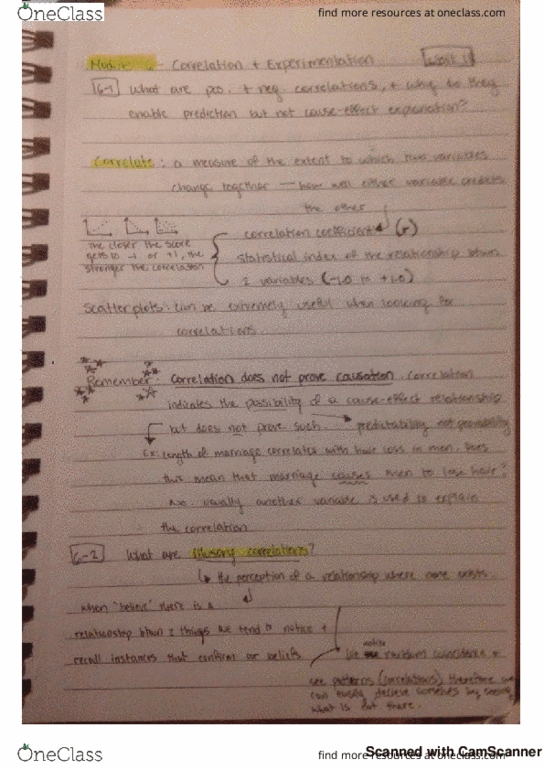 OneClass
find more resources at oneclass.com
Module 6 - Correlation + Experimentation
Unit 1
6-1 What are pos. + neg. correlations, + why do they
enable prediction but not cause-effect explanation?
Correlate: a measure of the extent to which two variables
change together — how well either variable predicts
the other
correlation coefficient (r)
The closer the score
gets to -1 or +1, the
stronger the correlation
statistical index of the relationship btwn
2 variables (-1.0 to +1.0)
Scatterplots: can be extremely useful when looking for
correlations.
Remember: Correlation does not prove causation. Correlation
indicates the possibility of a cause-effect relationship
but does not prove such.
predictability not provability
Ex: length of marriage correlates with hair loss in men. Does
this mean that marriage causes men to lose hair?
No. usually another variable is used to explain
the correlation
6-2 What are illusory correlations?
the perception of a relationship where none exists.
when "believe" there is a
relationship btwn 2 things we tend to notice +
recall instances that confirm our beliefs
We notice random coincidence +
see patterns (correlations) therefore we
can easily deceive ourselves by seeing
what is not there.
OneClass
find more resources at oneclass.com
Scanned with CamScanner